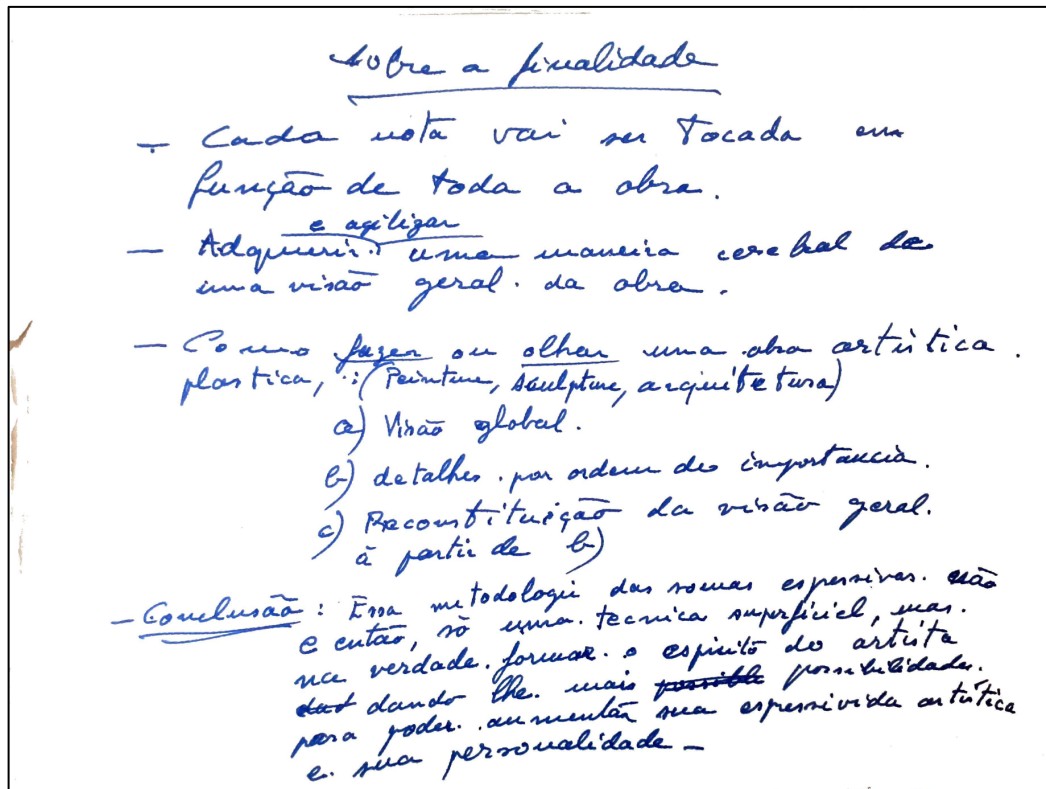 sobre a finalidade
— Cada nota vai ser Tocada em
função de toda a obra.
e agiligar
— Adquerir uma maneira cerebal de
uma visão geral. da obra.
— Como fazer ou olhar uma obra artística.
plastica, : (Peinture, sculpture, arquitetura)
a) Visão global.
b) detalhes. por ordem de importancia.
c) Reconstituição da visão geral.
à partir de b)
— Conclusão : Essa metodologie das somas espressivas. não
e então, só uma. tecnica superficiel, mas.
na verdade. formar. o espirito do artista
dando lhe. mais possible possibilidades.
para poder. aumentar sua espressivida artística
e. sua personalidade —